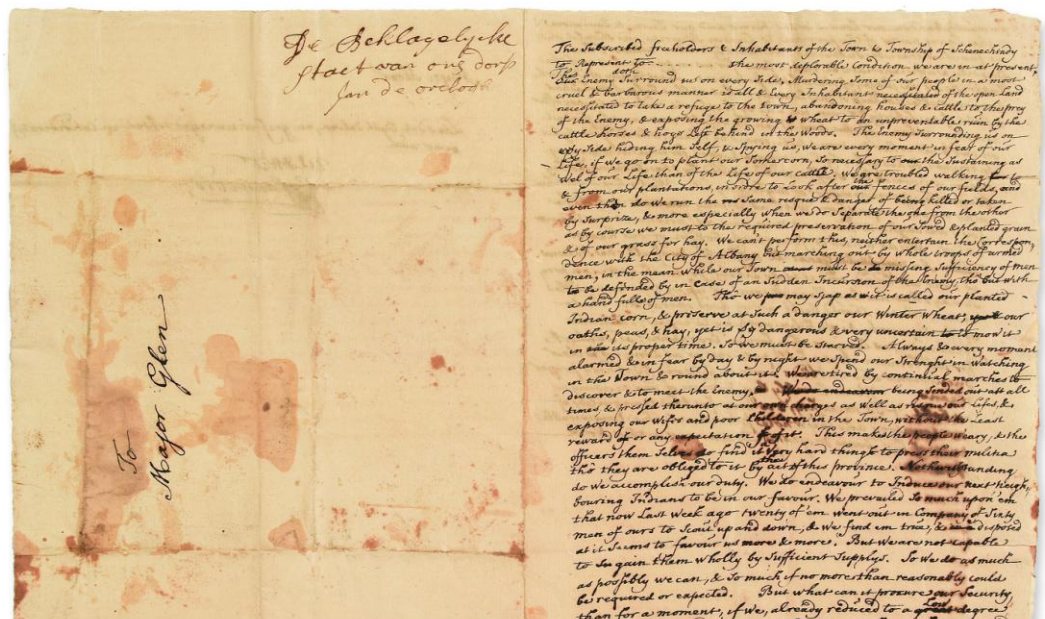 De Beklagelycke
staet van ons dorp
van de oorloge
To
Major Glen
The Subscribed freeholders & Inhabitants of the Town & Township of Schenechtady
to Represent to ........ the most deplorable Condition we are in at present,
The Enemy doth Surround us on every Side, Murdering Some of our people in a most
cruel & barbarous manner is all & Every Inhabitant of the open Land
necessitated to take a refuge to the town, abandoning houses & cattle to the prey
of the Enemy, & exposing the growing wheat to an unpreventable ruin by the
cattle horses & hogs Left behind in the woods. The Enemy Surrounding us on
evry Side hiding him Self, & Spying us, we are every moment in fear of our
Life, if we go on to plant our Somercorn, So necessary to the Sustaining as
wel of our Life than of the Life of our Cattle. we are troubled walking to
& from our plantations, in ordre to Look after the fences of our fields, and
even then do we run the Same resque & danger of being killed or taken
by Surprize, & more especially when we do Separate the one from the other
as by course we must to the required preservation of our Sowed & planted grain
& of our grass for hay. We can't perform this, neither entertain the Correspon,
dence with the City of Albany but marching out by whole troops of armed
men, in the mean while our Town must be missing Sufficiency of men
to be defended by in Case of an Sudden Incursion of the Enemy, tho but with
a hand fulle of men. Tho we may Snap as it is called our planted
Indian corn, & preserve at Such a danger our Winter Wheat, our
oaths, peas, & hay, yet is So dangerous & very uncertain to mow it
in its proper time. So we must be starved. Always & every moment
alarmed & in fear by day & by night we Spend our Strenght in watching
in the Town & round about it. we are tired by continual marches to
discover & to meet the Enemy, being Sended out att all
times, & pressed therunto at our own charges as well as risque our Lifes, &
exposing our Wifes and poor Children in the Town, without the Least
reward of or any expectation of it. This makes the people weary, & the
officers them Selves do find it very hard things to press their militia
tho they are obliged to it by the act of this province. Notherwistanding
do we accomplish our duty. We do endeavour to Induce our next Neigh,
bouring Indians to be in our favour. We prevailed So much upon 'em
that now Last Week ago twenty of 'em went out in Company of Sixty
men of ours to Scout up and down, & we find em true, & disposed
at it Seems to favour us more & more. But we are not Capable
to gain them wholly by Sufficient Supplys. So we do as much
as possibly we can, & So much if no more than reasonably could
be required or expected. But what can it procure our Security,
than for a moment, if we, already reduced to a Low degree